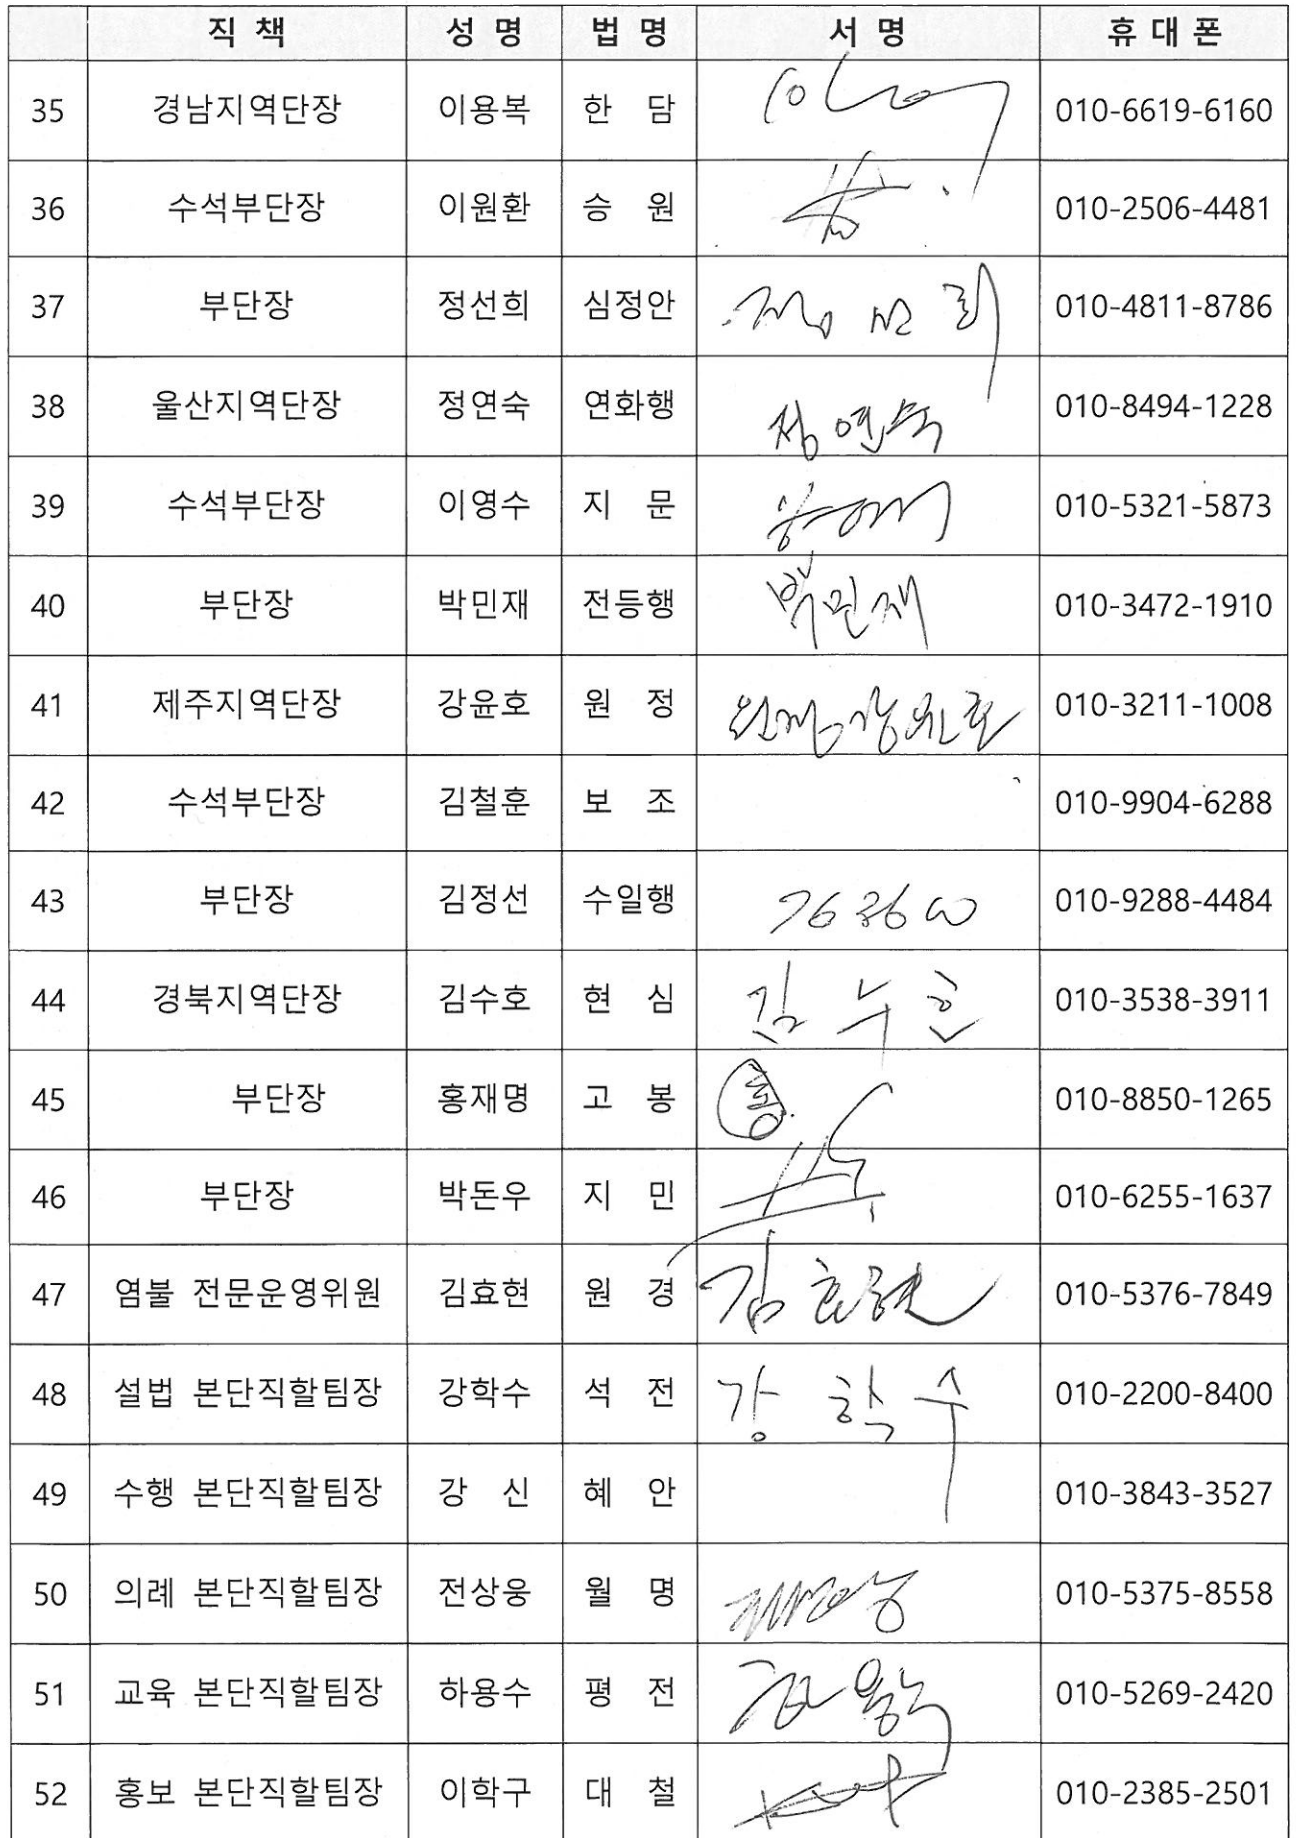 직 책 성 명 법 명 서 명 휴 대 폰
35 경남지역단장 이용복 한 담 010-6619-6160
36 수석부단장 이원환 승 원 010-2506-4481
37 부단장 정선희 심정안 정선희 010-4811-8786
38 울산지역단장 정연숙 연화행 정연숙 010-8494-1228
39 수석부단장 이영수 지 문 010-5321-5873
40 부단장 박민재 전등행 박민재 010-3472-1910
41 제주지역단장 강윤호 원 정 원정강윤호 010-3211-1008
42 수석부단장 김철훈 보 조 010-9904-6288
43 부단장 김정선 수일행 010-9288-4484
44 경북지역단장 김수호 현 심 김수호 010-3538-3911
45 부단장 홍재명 고 봉 홍 010-8850-1265
46 부단장 박돈우 지 민 010-6255-1637
47 염불 전문운영위원 김효현 원 경 김효현 010-5376-7849
48 설법 본단직할팀장 강학수 석 전 강학수 010-2200-8400
49 수행 본단직할팀장 강 신 혜 안 010-3843-3527
50 의례 본단직할팀장 전상웅 월 명 010-5375-8558
51 교육 본단직할팀장 하용수 평 전 010-5269-2420
52 홍보 본단직할팀장 이학구 대 철 010-2385-2501